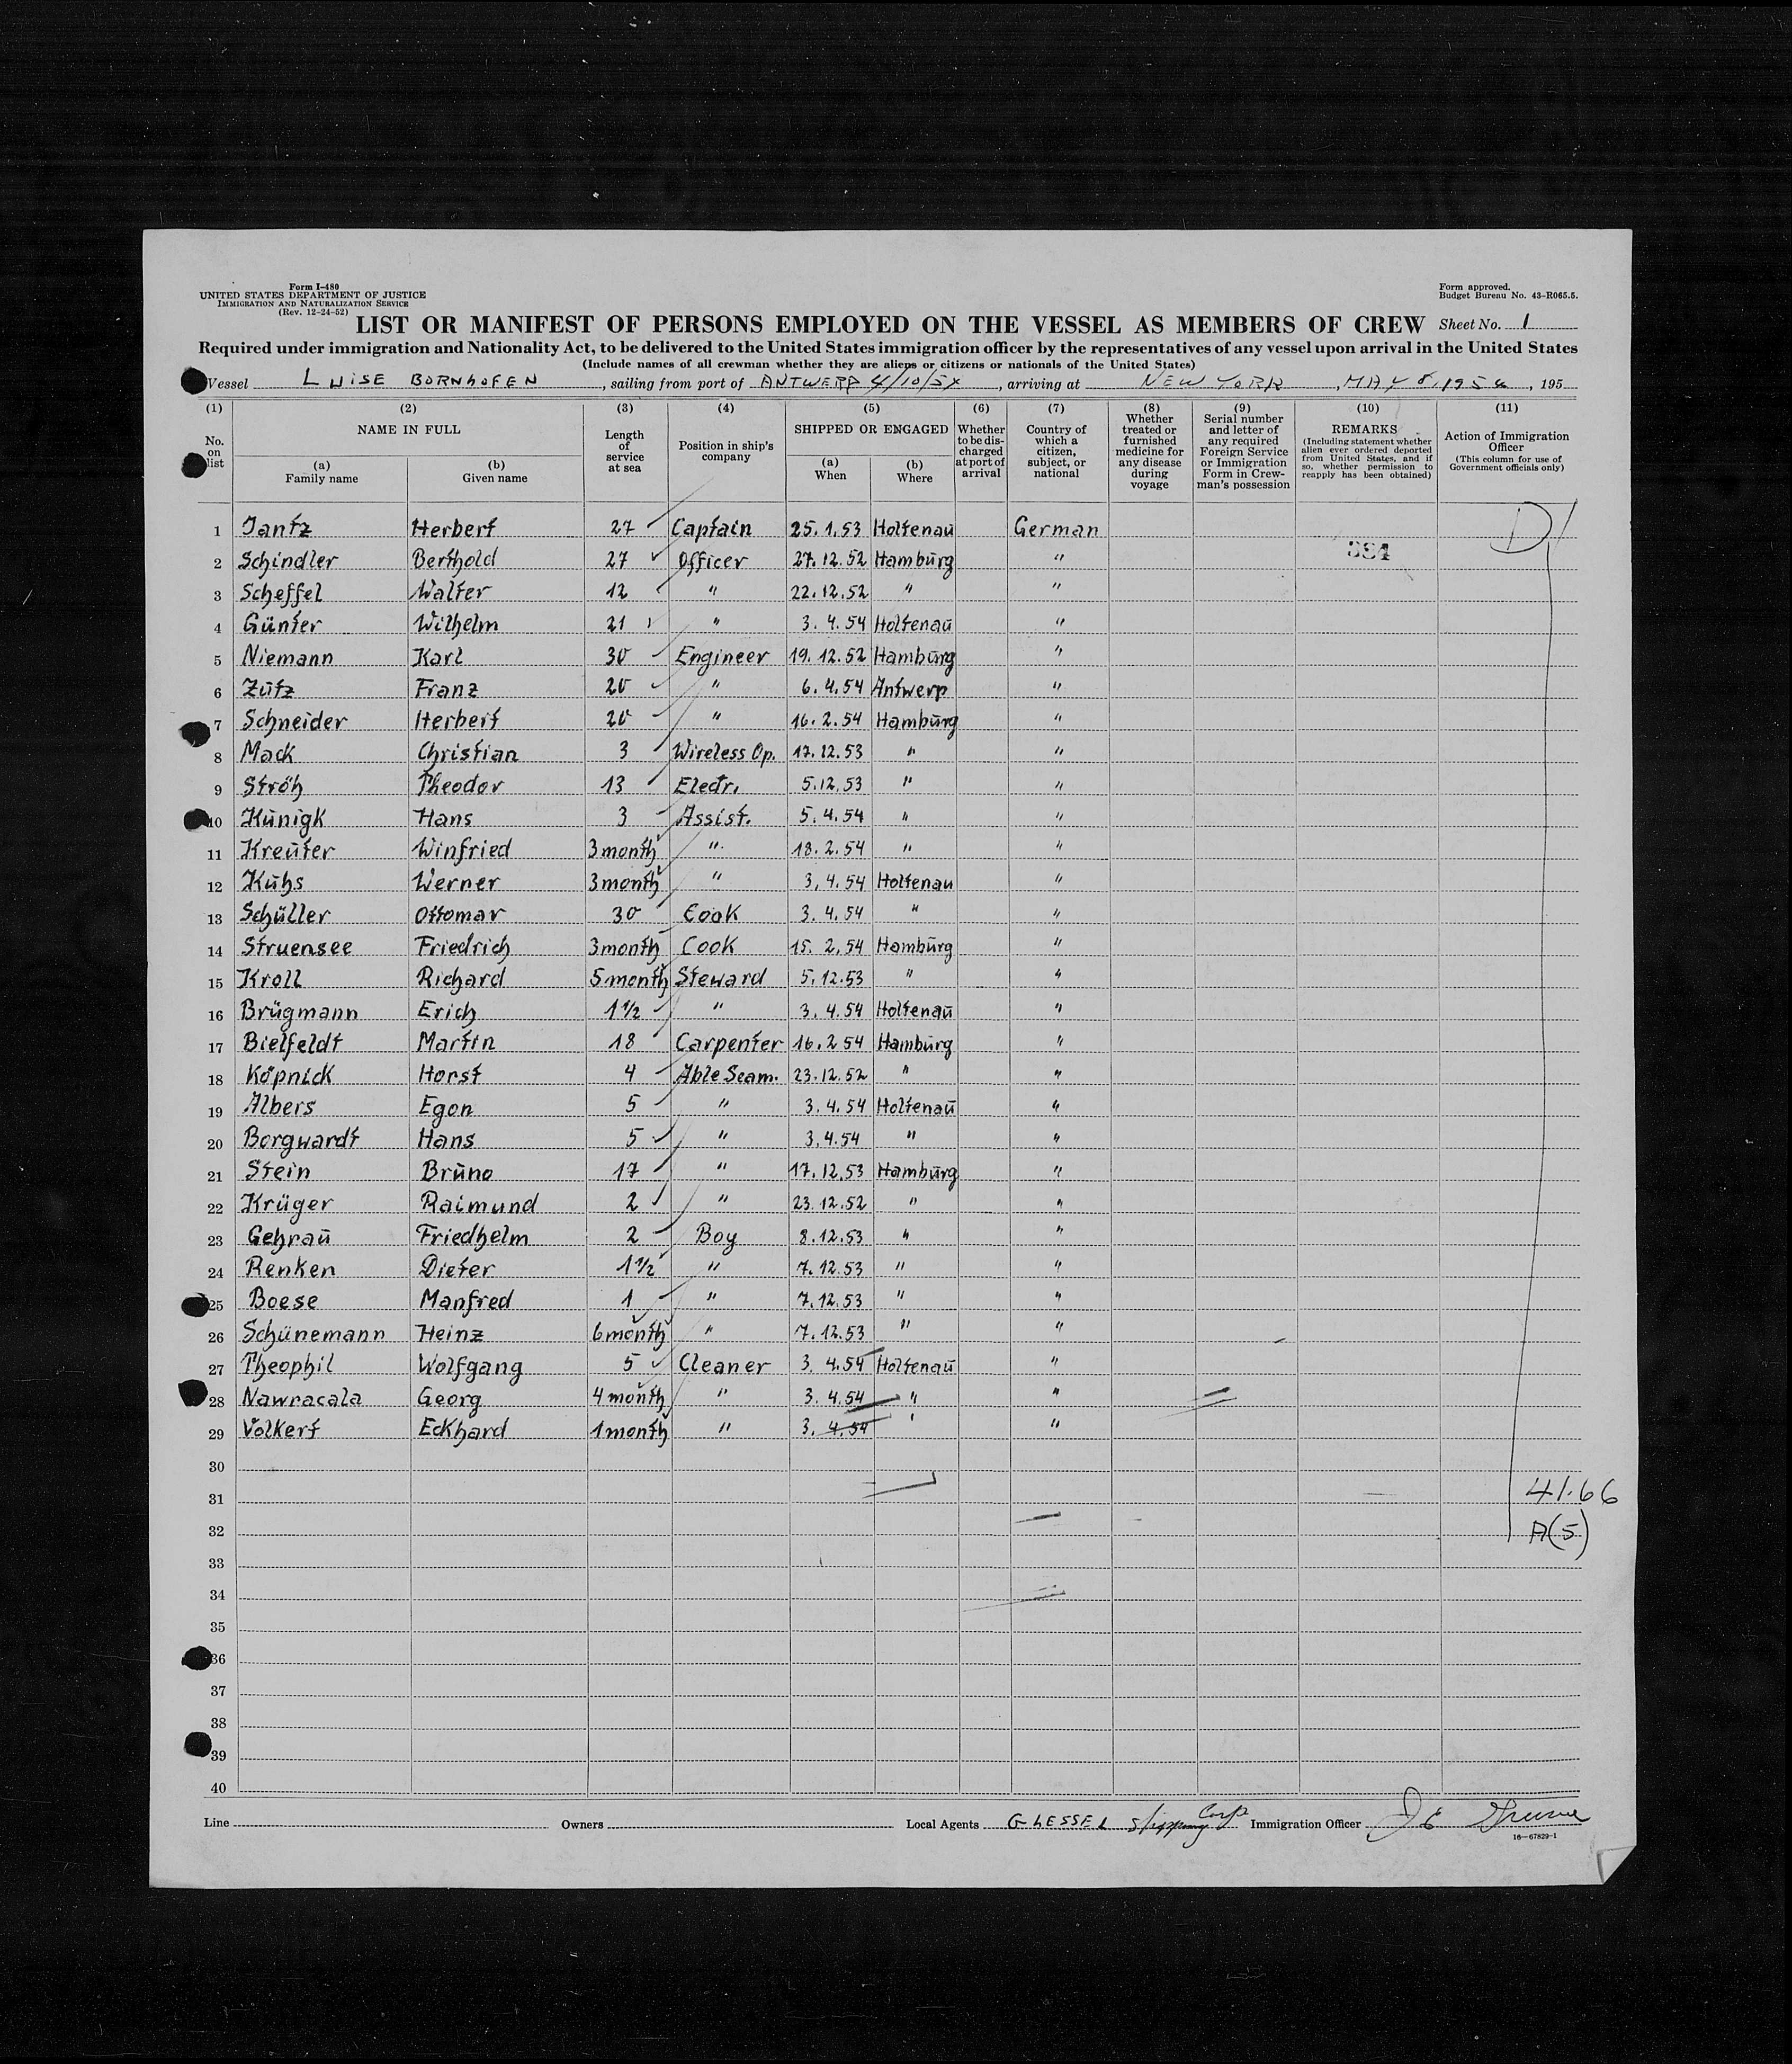 Form I-480
UNITED STATES DEPARTMENT OF JUSTICE
IMMIGRATION AND NATURALIZATION SERVICE
(Rev. 12-24-52)
Form approved.
Budget Bureau No. 43-R065.5.
LIST OR MANIFEST OF PERSONS EMPLOYED ON THE VESSEL AS MEMBERS OF CREW Sheet No. 1
Required under immigration and Nationality Act, to be delivered to the United States immigration officer by the representatives of any vessel upon arrival in the United States
(Include names of all crewman whether they are aliens or citizens or nationals of the United States)
Vessel LUISE BORNHOFEN, sailing from port of ANTWERP 4/10/54, arriving at NEW YORK, MAY 8, 1954, 195
(1) No. on list
(2) NAME IN FULL
(a) Family name
(b) Given name
(3) Length of service at sea
(4) Position in ship's company
(5) SHIPPED OR ENGAGED
(a) When
(b) Where
(6) Whether to be discharged at port of arrival
(7) Country of which a citizen, subject, or national
(8) Whether treated or furnished medicine for any disease during voyage
(9) Serial number and letter of any required Foreign Service or Immigration Form in Crewman's possession
(10) REMARKS (Including statement whether alien ever ordered deported from United States, and if so, whether permission to reapply has been obtained)
(11) Action of Immigration Officer (This column for use of Government officials only)
1 Jantz Herbert 27 Captain 25.1.53 Holtenau German D
2 Schindler Berthold 27 Officer 27.12.52 Hamburg " 384
3 Scheffel Walter 12 " 22.12.52 " "
4 Günter Wilhelm 21 " 3.4.54 Holtenau "
5 Niemann Karl 30 Engineer 19.12.52 Hamburg "
6 Zutz Franz 20 " 6.4.54 Antwerp "
7 Schneider Herbert 20 " 16.2.54 Hamburg "
8 Mack Christian 3 Wireless Op. 17.12.53 " "
9 Ströh Theodor 13 Electr. 5.12.53 " "
10 Kunigk Hans 3 Assist. 5.4.54 " "
11 Kreuter Winfried 3 month " 18.2.54 " "
12 Kuhs Werner 3 month " 3.4.54 Holtenau "
13 Schüller Ottomar 30 Cook 3.4.54 " "
14 Struensee Friedrich 3 month Cook 15.2.54 Hamburg "
15 Kroll Richard 5 month Steward 5.12.53 " "
16 Brügmann Erich 1 1/2 " 3.4.54 Holtenau "
17 Bielfeldt Martin 18 Carpenter 16.2 54 Hamburg "
18 Köpnick Horst 4 Able Seam. 23.12.52 " "
19 Albers Egon 5 " 3.4.54 Holtenau "
20 Borgwardt Hans 5 " 3.4.54 " "
21 Stein Bruno 17 " 17.12.53 Hamburg "
22 Krüger Raimund 2 " 23.12.52 " "
23 Gehrau Friedhelm 2 Boy 8.12.53 " "
24 Renken Dieter 1 1/2 " 7.12.53 " "
25 Boese Manfred 1 " 7.12.53 " "
26 Schünemann Heinz 6 month " 7.12.53 " "
27 Theophil Wolfgang 5 Cleaner 3.4.54 Holtenau "
28 Nawracala Georg 4 month " 3.4.54 " "
29 Volkert Eckhard 1 month " 3.4.54 ' "
30
31 41.66
32 A(5)
33
34
35
36
37
38
39
40
Line Owners Local Agents GLESSEL Shipping Corp Immigration Officer J E
16—67829-1